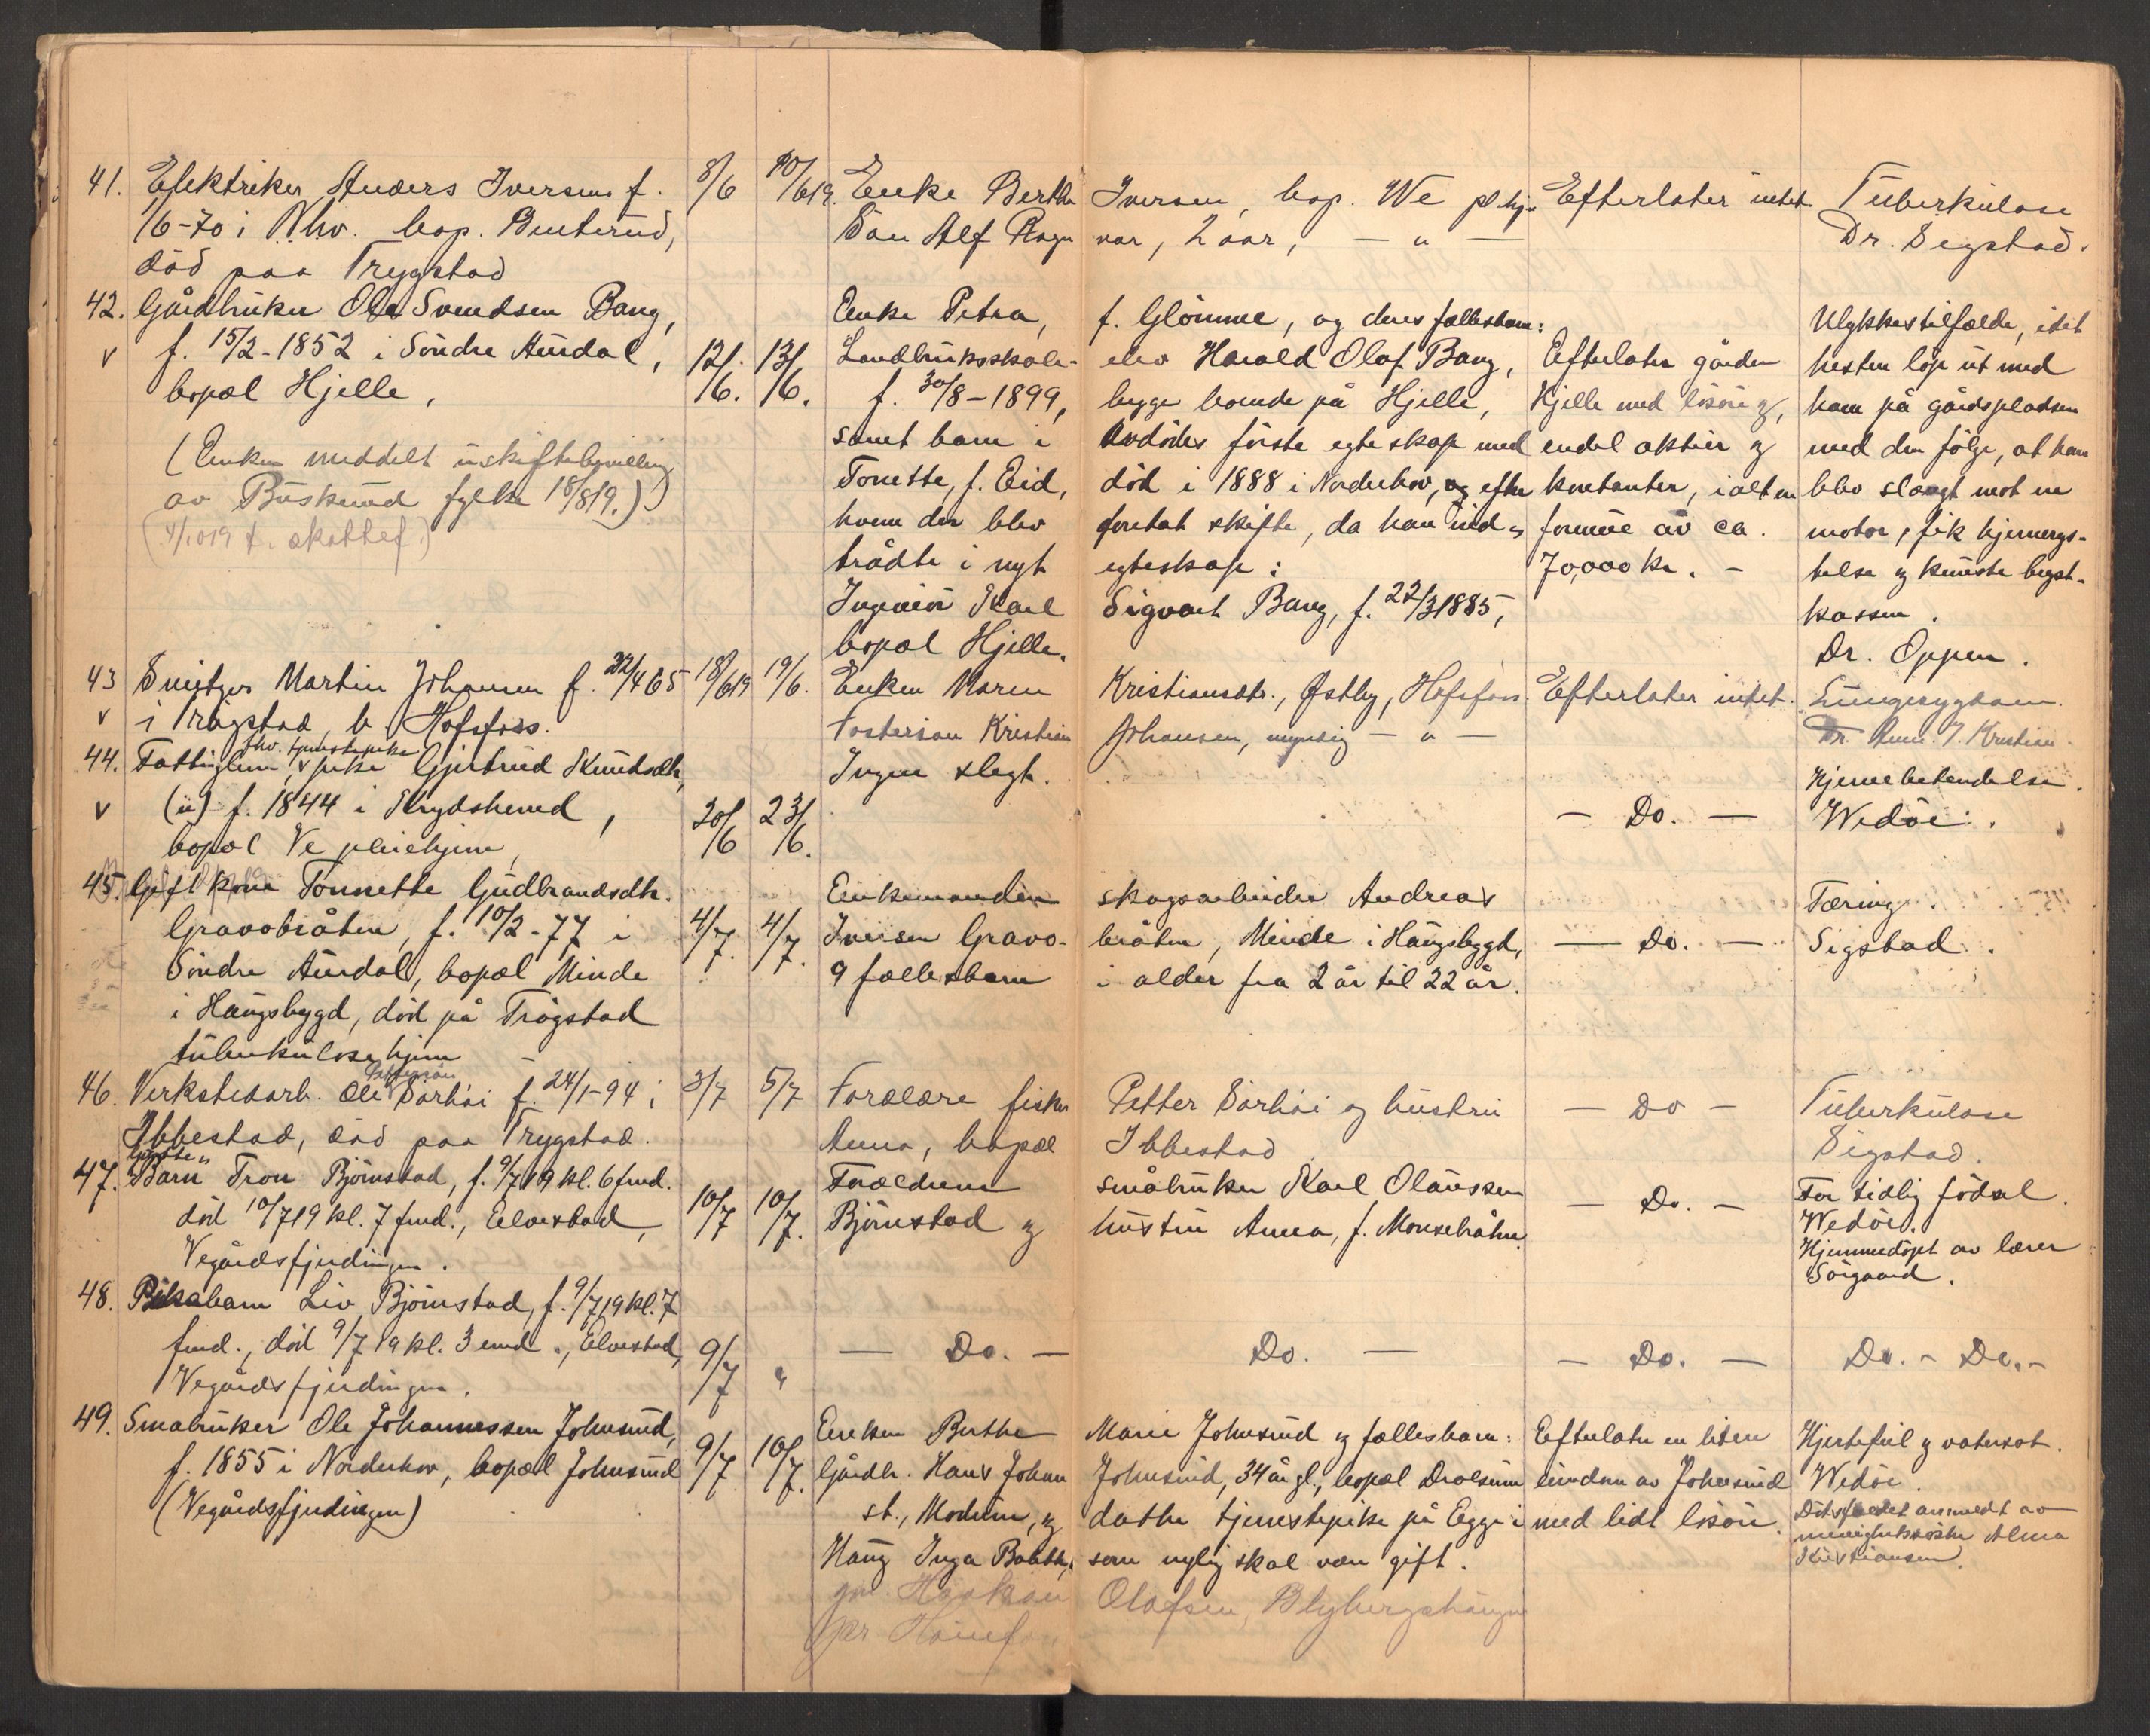 41. Elektriker Anders Iversen f. 8/6 10/6 19. Enke Bertha Iversen, bop. We plhj. Efterlater intet. Tuberkulose
/6-70 i Nhv. bop. Busterud, Søn Alf Ragnvar, 2 aar, — " — Dr. Sigstad.
død paa Trygstad
42. Gårdbruker Ole Svendsen Bang, Enke Petra, f. Glömme, og deres fællesbarn: Ulykkestilfælde, idet
v f. 15/2-1852 i Söndre Aurdal, 12/6. 13/6. Landbruksskole-elev Harald Olaf Bang, Efterlater gården hesten löp ut med
bopæl Hjelle, f. 30/8-1899, begge boende på Hjelle, Hjelle med lösöre og, ham på gårdspladsen
(Enken meddelt uskiftebevilling samt barn i Avdödes förste egteskap med endel aktier og med den fölge, at han
av Buskerud fylke 18/8 19.) Tonette, f. Eid, död i 1888 i Norderhov, og efter kontanter, ialt en blev slængt mot en
(4/10 19 t. skattef.) hvem der blev foretat skifte, da han ind- formue av ca. motor, fik hjernerys-
trådte i nyt egteskap: 70,000 kr. - telse og knuste bryst-
Ingeniör Karl Sigvart Bang, f. 22/3 1885, kassen.
bopæl Hjelle. Dr. Oppen.
43 Snitzer Martin Johansen f. 22/4 65 18/6 19 19/6. Enken Maren Kristiansdtr., Østby, Hofsfoss. Efterlater intet. Lungesygdom.
v i Trögstad b. Hofsfoss. Fostersøn Kristian Johansen, myndig — " — Dr. J. Kristian
fhv. tjenestepike
44. Fattiglem, pike Gjertrud Knudsdtr, Ingen slegt. Hjernebetændelse.
v (u) f. 1844 i Krydsherred, 20/6 23/6. — Do. — Wedöe.
bopæl Ve pleiehjem,
45. Gift kone Tonnette Gudbrandsdtr. Enkemanden skogsarbeider Andreas Tæring.
Gravobråten, f. 10/2-77 i 4/7. 4/7. Iversen Gravo-bråten, Minde i Haugsbygd, — Do. — Sigstad.
Söndre Aurdal, bopæl Minde 9 fællesbarn i alder fra 2 år til 22 år.
i Haugsbygd, död på Trögstad
tuberkulosehjem
Pettersøn
46. Verkstedarb. Ole Sørhöi f. 24/1-94 i 3/7 5/7 Forældre fisker Petter Sørhöi og hustru — Do — Tuberkulose
Ibbestad, død paa Trygstad. Anna, bopæl Ibbestad Sigstad.
47. Barn Tron Björnstad, f. 9/7 19 kl. 6 fmd. Forældrene småbruker Karl Olaussen For tidlig födsel.
död 10/7 19 kl. 7 fmd., Elvestad, 10/7 10/7. Björnstad og hustru Anna, f. Monsebråten. — Do. — Wedöe.
Vegårdsfjerdingen. Hjemmedöpt av lærer
Sörgaard.
48. Pikebarn Liv Björnstad, f. 9/7 19 kl. 7
fmd., död 9/7 19 kl. 3 emd., Elvestad, 9/7 " — Do. — Do. — — Do. — Do. - Do. -
Vegårdsfjerdingen.
49. Småbruker Ole Johannessen Johnsrud, Enken Berthe Marie Johnsrud og fællesbarn: Efterlater en liten Hjertefeil og vatersot.
f. 1855 i Norderhov, bopæl Johnsrud 9/7 10/7. Gårdbr. Hans Johan Johnsrud, 34 år gl., bopæl Drolsum eiendom av Johnsrud Wedöe.
(Vegårdsfjerdingen) st., Modum, og datter tjenestepike på Egge i med lidt lösöre. Dödsfaldet anmeldt av
menighetssöster Alma
Haug Inga Bolette, som nylig skal være gift. Kristiansen.
gm. Haakon Olafsen, Blybergshaugen
pr Hönef